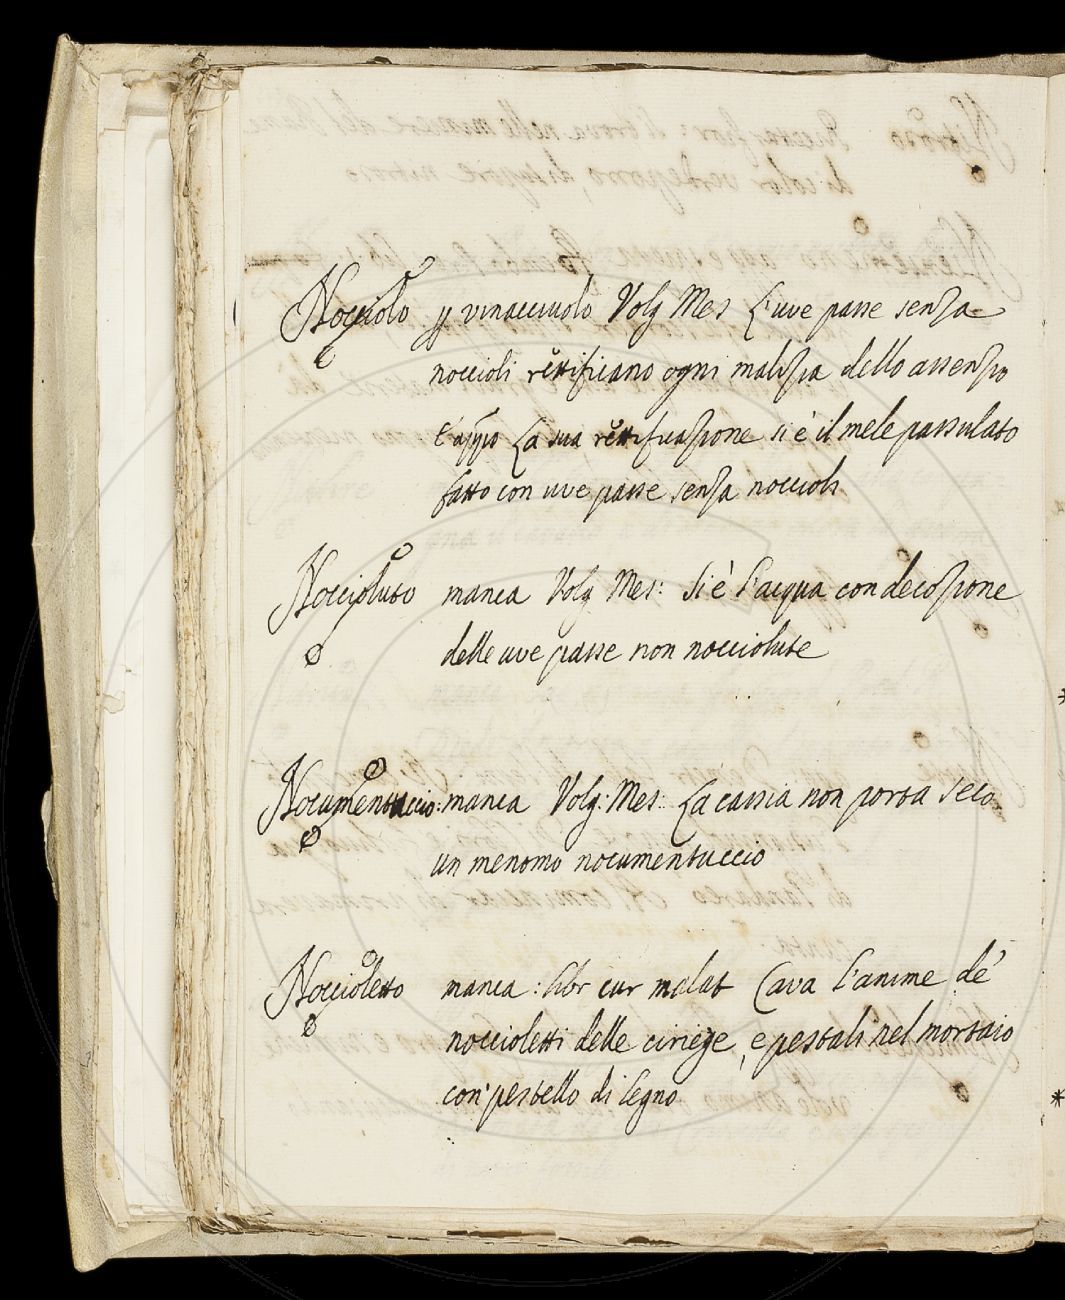 Nocciolo p vinacciuolo Volg Mes L'uve passe senza
noccioli rettificano ogni malizia dello assenzio
E appo La sua rettificazione si è il mele passulato
fatto con uve passe senza noccioli
Noccioluto manca Volg Mes: Si è l'acqua con decozione
delle uve passe non nocciolute
Nocumentuccio: manca Volg: Mes: La cassia non porta seco
un menomo nocumentuccio
Noccioletto manca: libr cur malat Cava l'anime de'
noccioletti delle ciriege, e pestali nel mortaio
con pestello di legno